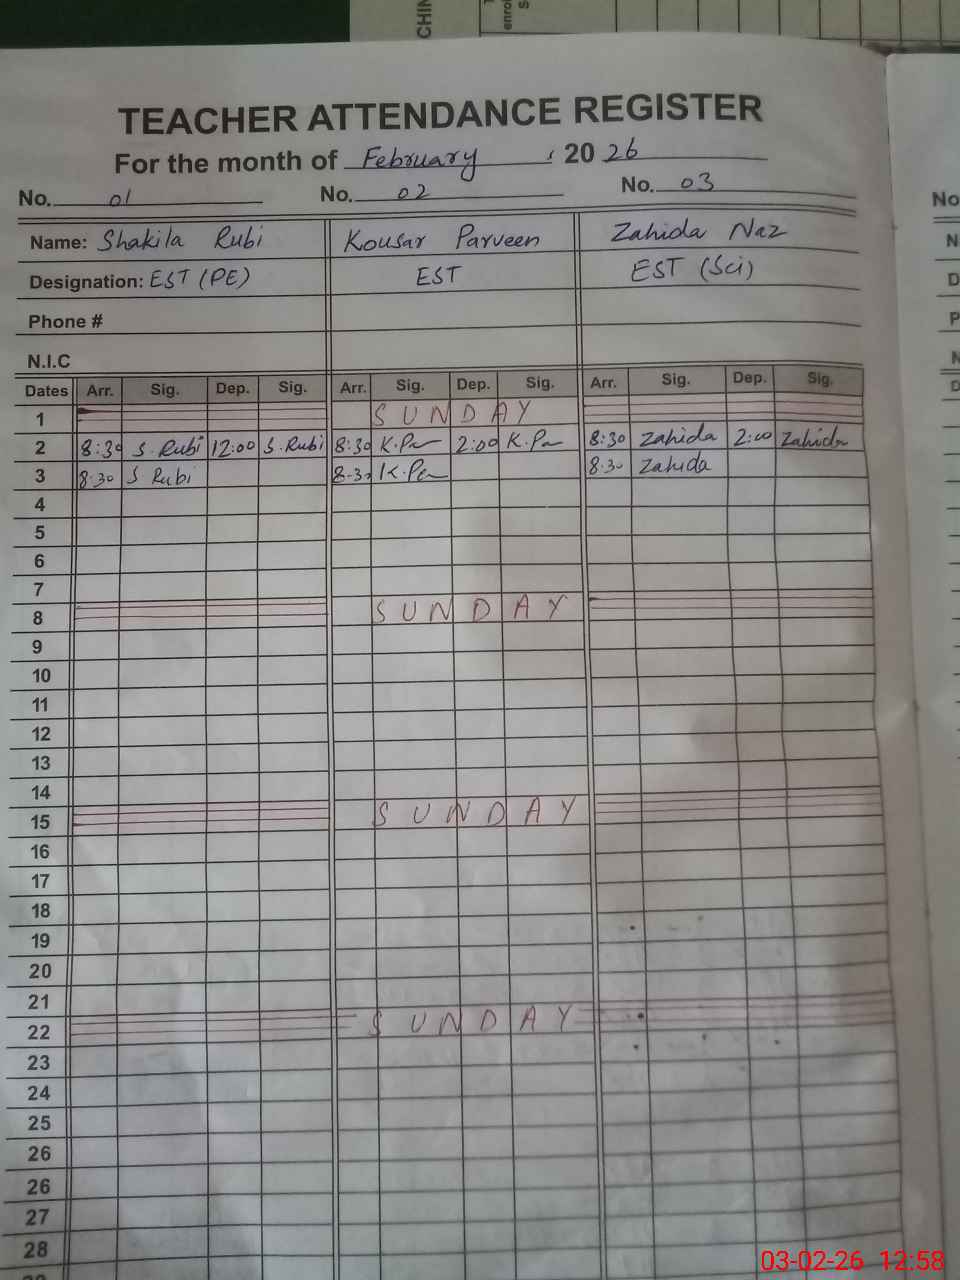 CHIN
enrol
S
TEACHER ATTENDANCE REGISTER
For the month of February, 2026
No. 01 No. 02 No. 03
Name: Shakila Rubi Kousar Parveen Zahida Naz
Designation: EST (PE) EST EST (Sci)
Phone #
N.I.C
Dates Arr. Sig. Dep. Sig. Arr. Sig. Dep. Sig. Arr. Sig. Dep. Sig.
1 SUNDAY
2 8:30 S. Rubi 12:00 S. Rubi 8:30 K.Pa 2:00 K.Pa 8:30 Zahida 2:00 Zahida
3 8:30 S Rubi 8:30 K.Pa 8:30 Zahida
4
5
6
7
8 SUNDAY
9
10
11
12
13
14
15 SUNDAY
16
17
18
19
20
21
22 SUNDAY
23
24
25
26
26
27
28
No
N
D
P
N
D
03-02-26 12:58